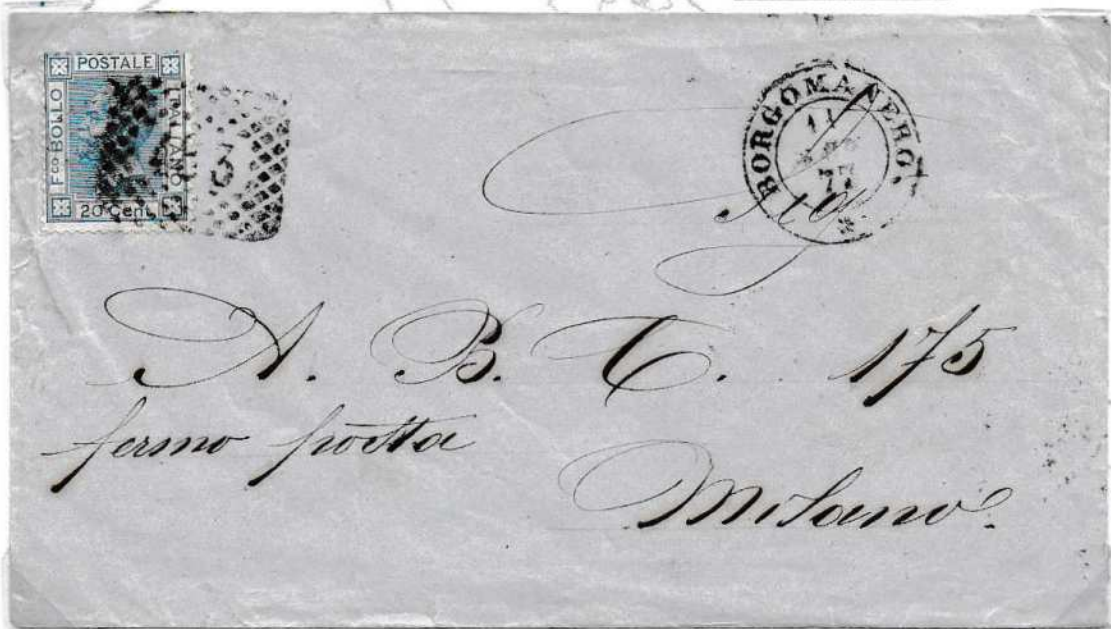 POSTALE
Fco BOLLO
ITALIANO
20 Cent
BORGOMANERO
11
77
A. B. C. 175
fermo posta
Milano